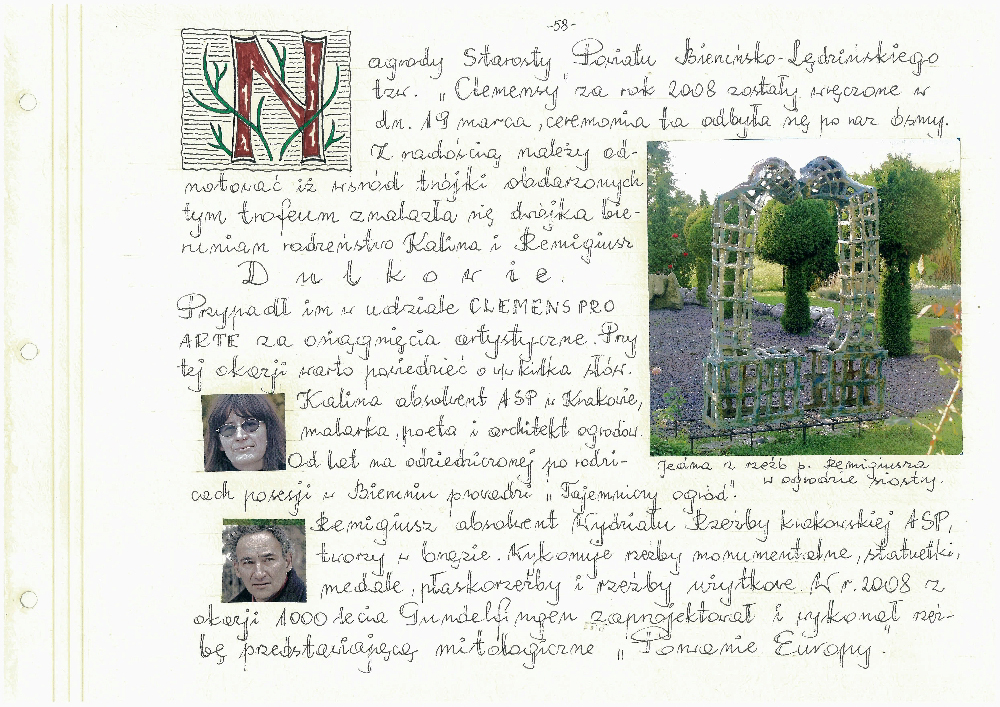 -58-
Nagrody Starosty Powiatu Bieruńsko-Lędzińskiego
tzw. „Clemensy" za rok 2008 zostały wręczone w
dn. 19 marca, ceremonia ta odbyła się po raz ósmy.
Z radością należy od-
notować iż wśród trójki obdarzonych
tym trofeum znalazła się dwójka bie-
runian rodzeństwo Kalina i Remigiusz
Dutkowie.
Przypadł im w udziale CLEMENS PRO
ARTE za osiągnięcia artystyczne. Przy
tej okazji warto powiedzieć o nich kilka słów.
Kalina absolwent ASP w Krakowie,
malarka, poeta i architekt ogrodów.
Od lat na odziedziczonej po rodzi-
cach posesji w Bieruniu prowadzi „Tajemniczy ogród".
Jedna z rzeźb p. Remigiusza
w ogrodzie siostry.
Remigiusz absolwent Wydziału Rzeźby krakowskiej ASP,
tworzy w brązie. Wykonuje rzeźby monumentalne, statuetki,
medale, płaskorzeźby i rzeźby użytkowe. W r. 2008 z
okazji 1000 lecia Gundelfingen zaprojektował i wykonał rzeź-
bę przedstawiającą mitologiczne „Porwanie Europy".